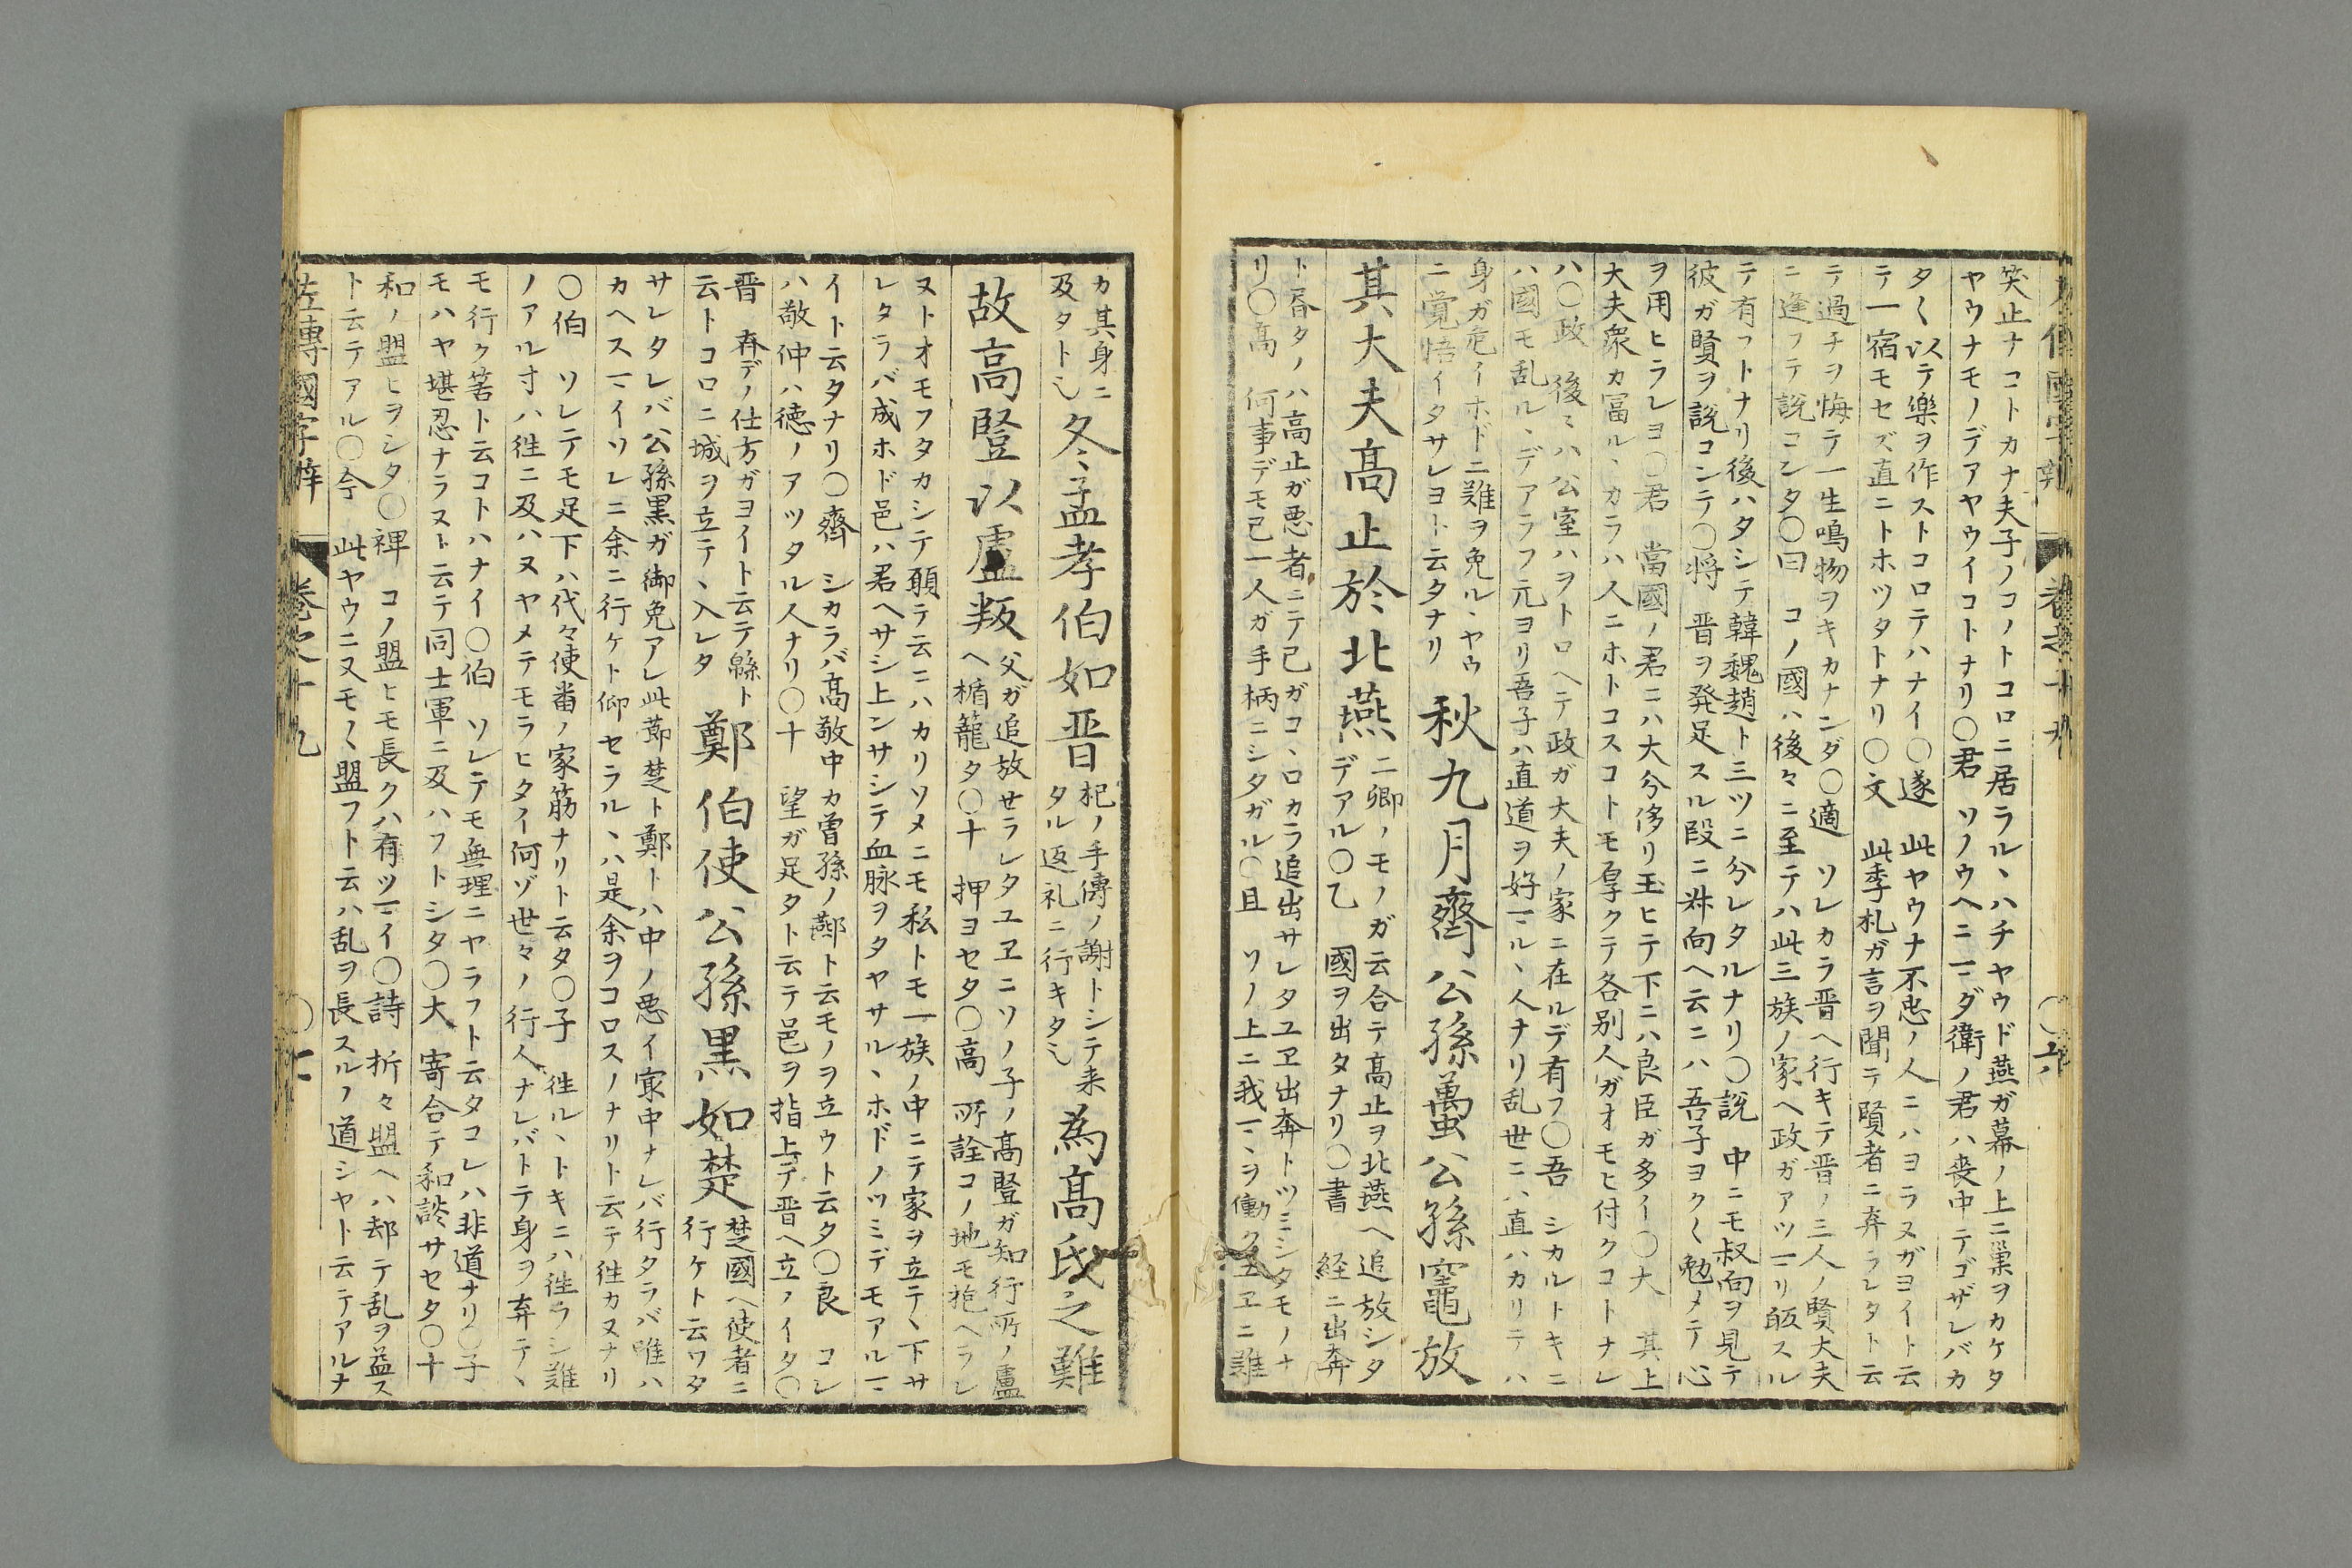 笑止ナコトカナ夫子ノコノトコロニ居ラル、ハチヤウド燕ガ幕ノ上ニ巣ヲカケタ
ヤウナモノデアヤウイコトナリ〇君 ソノウヘニマダ衛ノ君ハ喪中テゴザレバカ
タ〱以テ樂ヲ作ストコロテハナイ〇遂 此ヤウナ不忠ノ人ニハヨラヌガヨイト云
テ一宿モセズ直ニトホツタトナリ〇文 此季札ガ言ヲ聞テ賢者ニ弃ラレタト云
テ過チヲ悔テ一生鳴物ヲキカナンダ〇適 ソレカラ晋ヘ行キテ晋ノ三人ノ賢大夫
ニ逢フテ説コンタ〇曰 コノ國ハ後々ニ至テハ此三族ノ家ヘ政ガアツマリ皈スル
テ有フトナリ後ハタシテ韓魏趙ト三ツニ分レタルナリ〇説 中ニモ叔向ヲ見テ
彼ガ賢ヲ説コンテ〇将 晋ヲ発足スル段ニ叔向ヘ云ニハ吾子ヨク〱勉メテ心
ヲ用ヒラレヨ〇君 當國ノ君ニハ大分侈リ玉ヒテ下ニハ良臣ガ多イ〇大 其上
大夫衆カ冨ル、カラハ人ニホトコスコトモ厚クテ各別人ガオモヒ付クコトナレ
ハ〇政 後ミハ公室ハヲトロヘテ政ガ大夫ノ家ニ在ルデ有フ〇吾 シカルトキニ
ハ國モ乱ル、デアラフ元ヨリ吾子ハ直道ヲ好マル、人ナリ乱世ニハ直ハカリテハ
身ガ危イホドニ難ヲ免ル、ヤウ
ニ覚悟イタサレヨト云タナリ
秋九月齊公孫蠆公孫竈放
其大夫高止於北燕
二卿ノモノガ云合テ高止ヲ北燕ヘ追放シタ
デアル〇乙 國ヲ出タナリ〇書 経ニ出奔
ト書タノハ高止ガ悪者ニテ己ガコ、ロカラ追出サレタユヱ出奔トツミシタモノナ
リ〇高 何事デモ己一人ガ手柄ニシタガル〇且 ソノ上ニ我マ、ヲ働クユヱニ難
カ其身ニ
及タト也
冬孟孝伯如晋
杞ノ手傳ノ謝トシテ来
タル返礼ニ行キタ也
為高氏之難
故高豎以盧叛
父ガ追放セラレタユヱニソノ子ノ高豎ガ知行所ノ盧
ヘ楯籠タ〇十 押ヨセタ〇高 所詮コノ地モ抱ヘラレ
ヌトオモフタカシテ願テ云ニハカリソメニモ私トモ一族ノ中ニテ家ヲ立テ、下サ
レタラバ成ホド邑ハ君ヘサシ上ンサシテ血脉ヲタヤサル、ホドノツミデモアルマ
イト云タナリ〇齊 シカラバ高敬中カ曽孫ノ酀ト云モノヲ立ウト云タ〇良 コレ
ハ敬仲ハ徳ノアツタル人ナリ〇十 望ガ足タト云テ邑ヲ指上テ晋ヘ立ノイタ〇
晋 弃デノ仕方ガヨイト云テ緜ト
云トコロニ城ヲ立テ、入レタ
鄭伯使公孫黒如楚
楚國ヘ使者ニ
行ケト云ワタ
サレタレバ公孫黒ガ御免アレ此節楚ト鄭トハ中ノ悪イ冣中ナレバ行タラバ唯ハ
カヘスマイソレニ余ニ行ケト仰セラル、ハ是余ヲコロスノナリト云テ徃カヌナリ
〇伯 ソレテモ足下ハ代々使番ノ家筋ナリト云タ〇子 徃ル、トキニハ徃ラシ難
ノアル寸ハ徃ニ及ハヌヤメテモラヒタイ何ゾ世々ノ行人ナレバトテ身ヲ弃テ、
モ行ク筈ト云コトハナイ〇伯 ソレテモ無理ニヤラフト云タコレハ非道ナリ〇子
モハヤ堪忍ナラヌト云テ同士軍ニ及ハフトシタ〇大 寄合テ和談サセタ〇十
和ノ盟ヒヲシタ〇裨 コノ盟ヒモ長クハ有ツマイ〇詩 折々盟ヘハ却テ乱ヲ益ス
ト云テアル〇今 此ヤウニヌモ〱盟フト云ハ乱ヲ長スルノ道シヤト云テアルナ
左傳國字辯 卷之十九